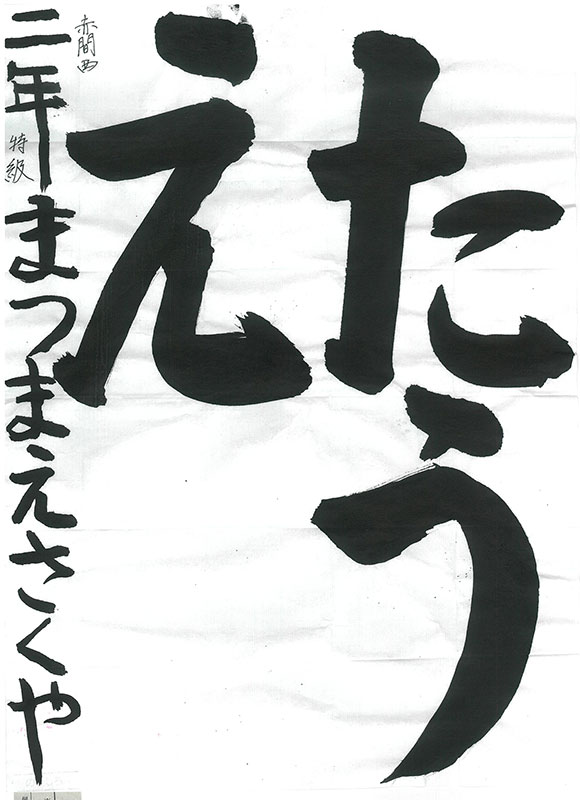 たう
え
赤間西
二年まつまえさくや
特級